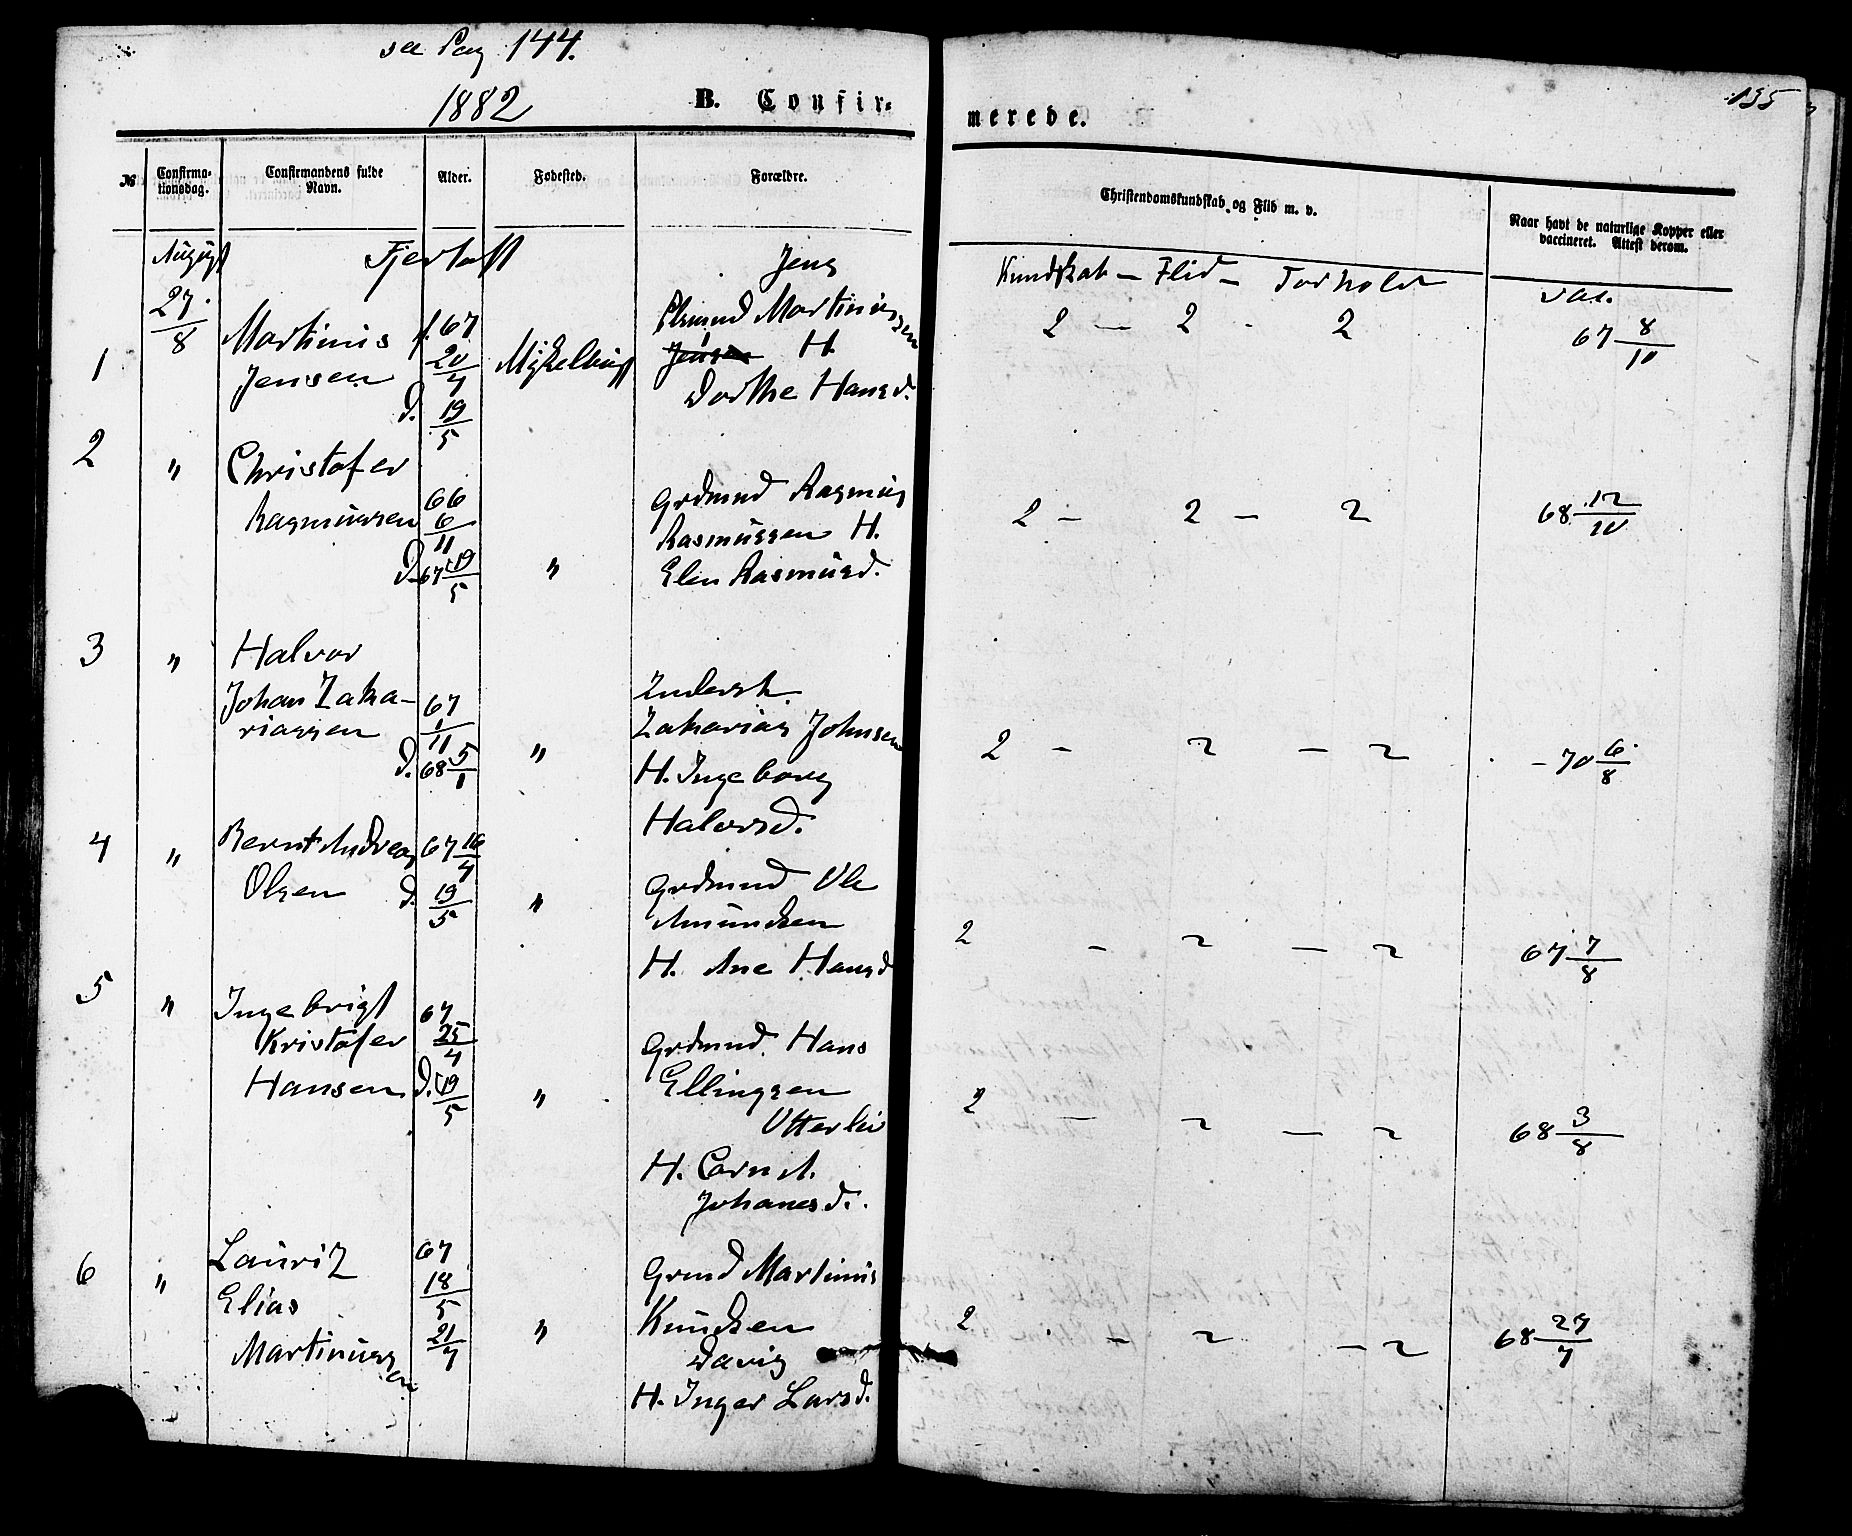 see Pag 144.
1882 B. Confir-
merede. 155
№ Confirma-tionsdag. Confirmandens fulde Navn. Alder. Fødested. Forældre. Christendomskundskab og Flid m. v. Naar havt de naturlige Kopper eller vaccineret. Attest derom.
August Fjertoft Jens Kundskab – Flid – Forhold vac.
27/8
1 Martinus f. 67 Martinussen 2 – 2 - 2 67 8/10
Jensen 20/4 Myklebust Jensen H.
d. 19/5 Dorthe Hansd.
2 " Christofer
66 Grdmnd Rasmus
Rasmussen 6/11 Rasmussen H. 2 – 2 – 2 68 12/10
d. 67 19/5 " Elen Rasmusd.
3 " Halvor
Johan Zaka- 67 Inderst.
riassen 1/11 Zakarias Johnsen 2 – 2 – 2 – 70 6/8
d. 68 5/1 " H. Ingeborg
Halvorsd.
4 " Bernt Andreas 67 16/4
Olsen d. 19/5 " Grdmnd Ole
Amundsen
H. Ane Hansd 2 – 2 – 2 67 7/8
5 " Ingebrigt 67
Kristofer 25/4 Grdmnd. Hans
Hansen d. 19/5 " Ellingsen 2 – 2 – 2 68 3/8
Otterlei
H. Corn A.
Johanesd.
6 " Lauritz 67 Grmd Martinus
Elias 18/5 Knudsen 2 – 2 – 2 68 27/7
Martinussen 21/7 " Davig
H. Inger Larsd.